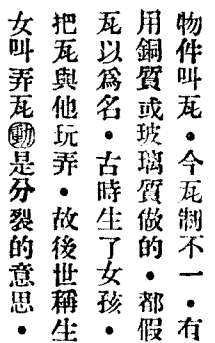 物件叫瓦・今瓦制不一・有
用銅質或玻璃質做的・都假
瓦以爲名・古時生了女孩・
把瓦與他玩弄・故後世稱生
女叫弄瓦動是分裂的意思・